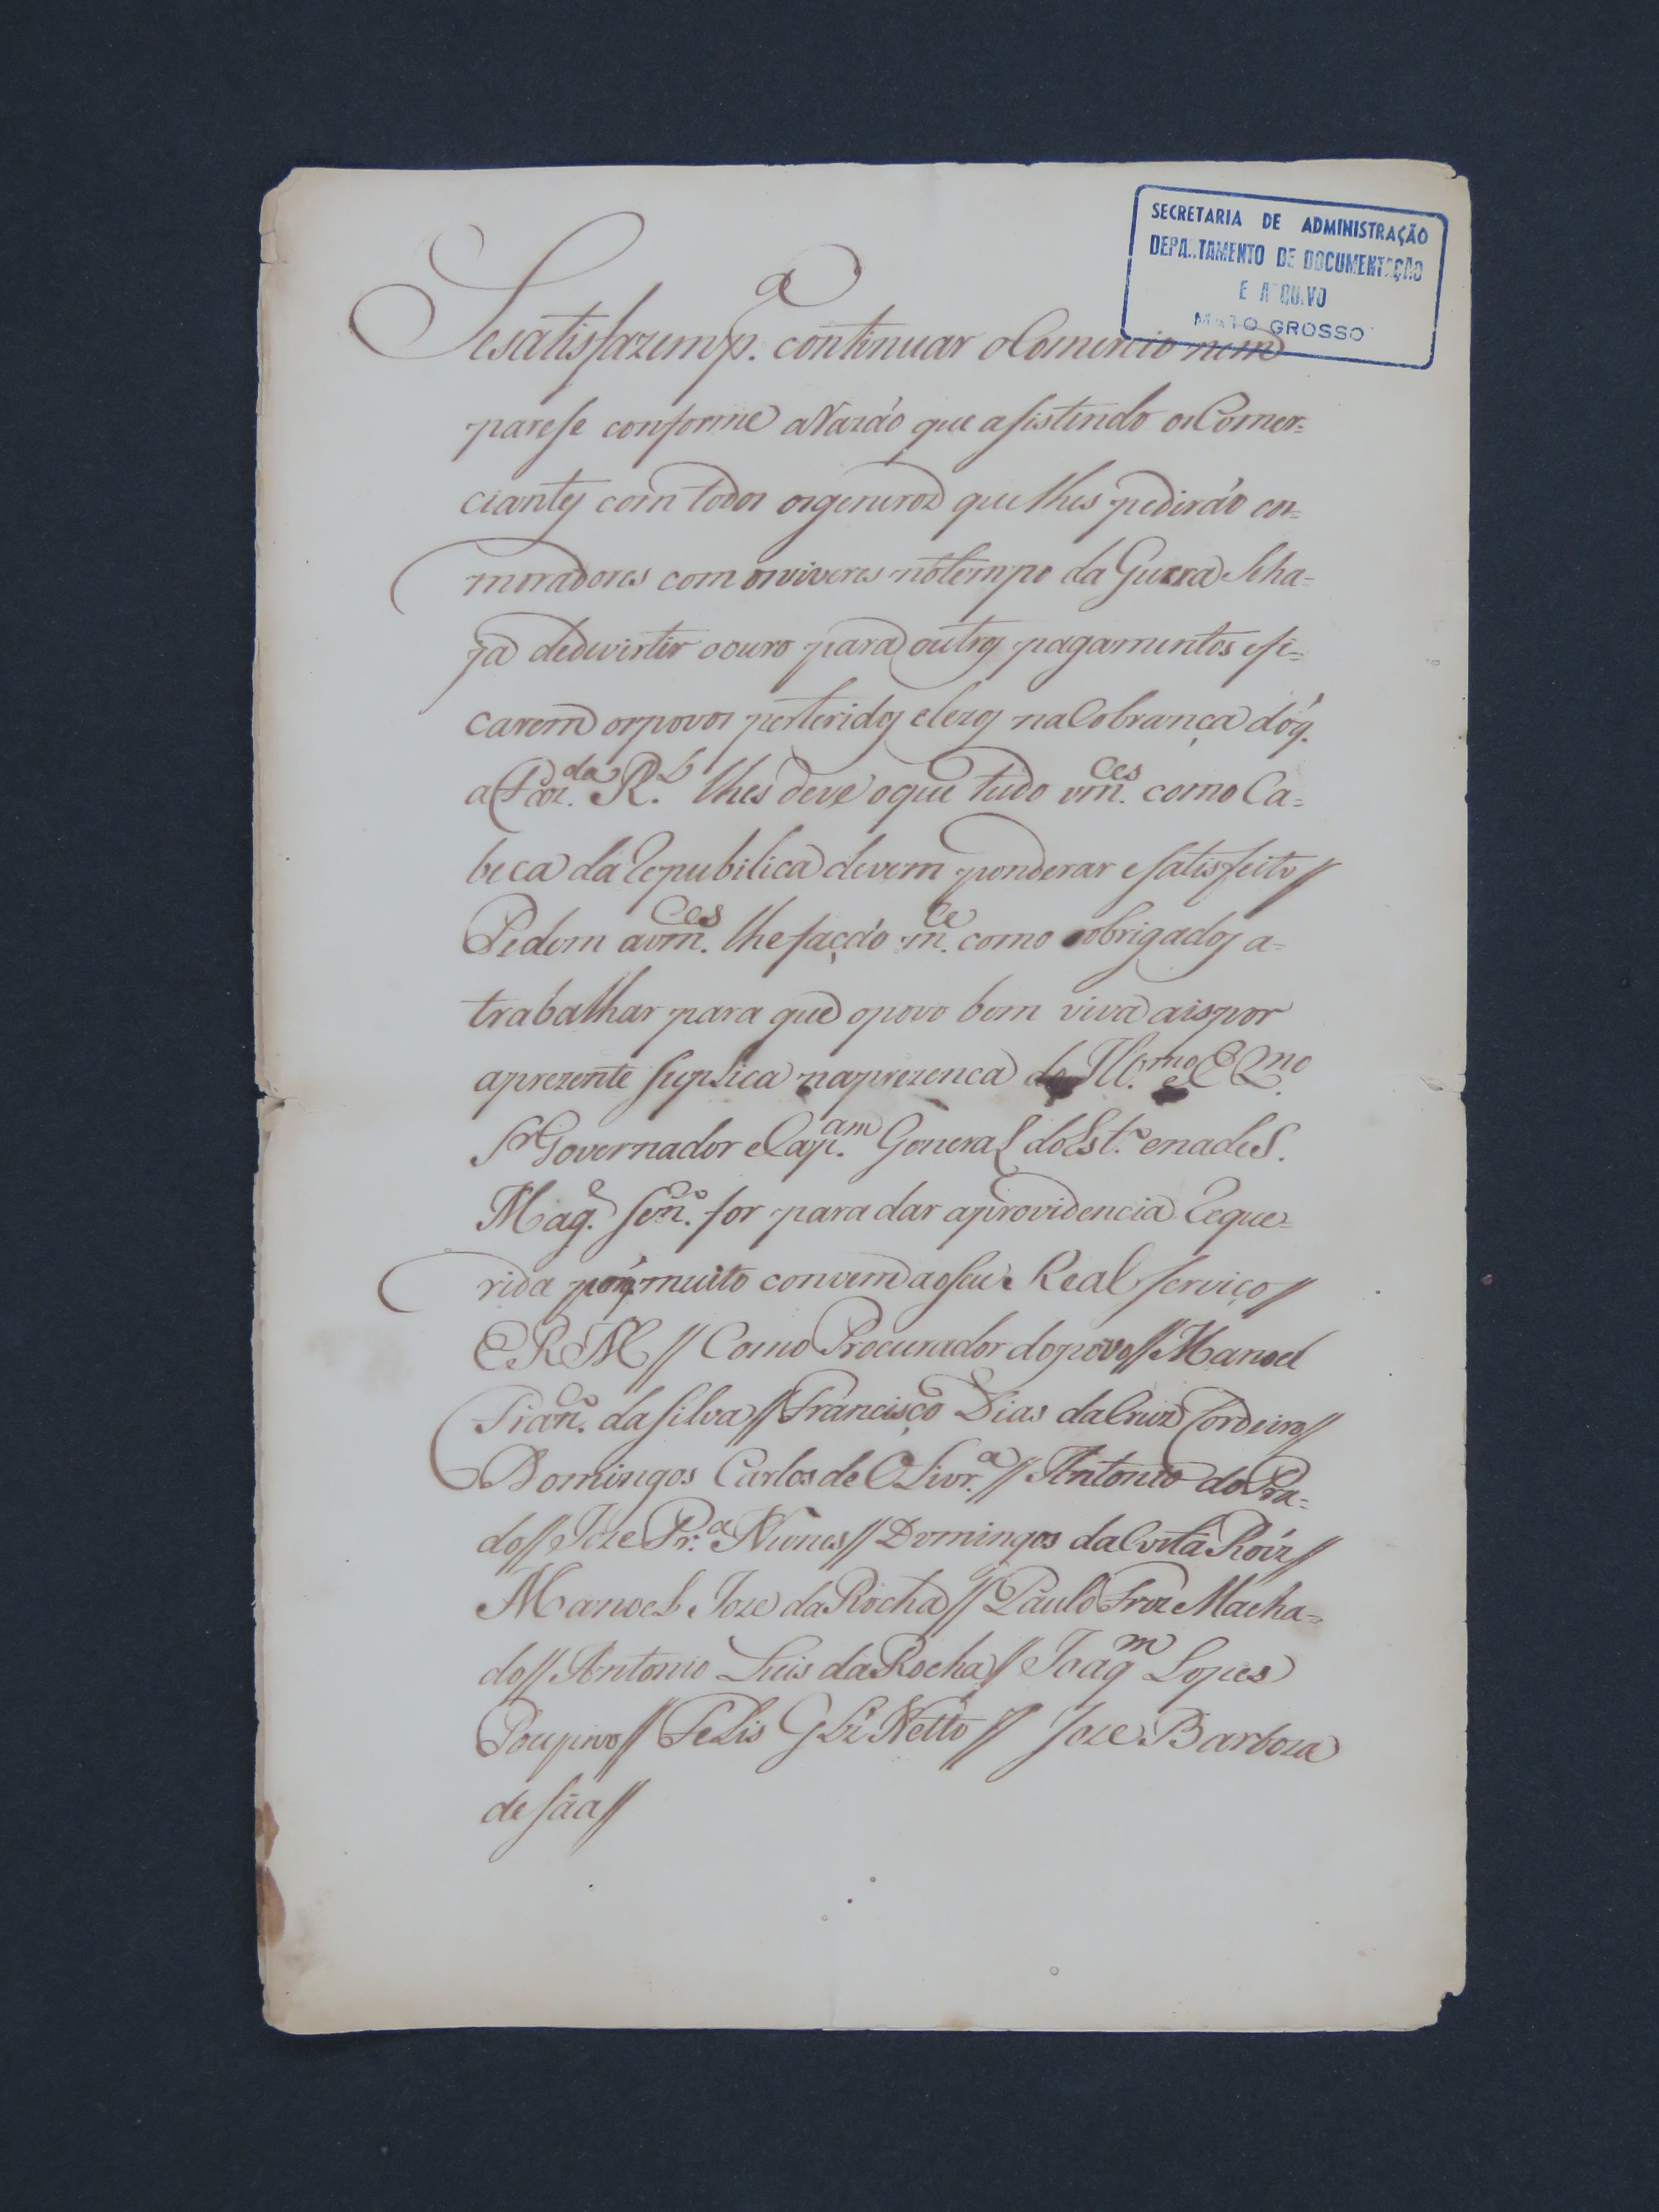 SECRETARIA DE ADMINISTRAÇÃO
DEPARTAMENTO DE DOCUMENTAÇÃO
E ARQUIVO
MATO GROSSO
Se satisfazem p.ª continuar o Comercio nem
parese conforme a Razão que asistindo os Comer=
ciantes com todos os generos que lhes pedirão e os
moradores com os viveres no tempo da Guerra se ha=
ja dedivirtir o ouro para outros pagamentos e fi=
carem os povos perteridos e lezos na Cobrança do q.
a Faz.da R.l lhes deve o que tudo vm.ces como Ca=
beca da Republica devem ponderar e satisfeito//
Pedem a vm.ces lhe facção m.ce como obrigados a=
trabalhar para que o povo bem viva a is por
a prezente suplica na prezenca do Ill.mo e Ex.mo
Sr Governador e Cap.am General do Est.º e na de S.
Mag.e se n.º for para dar a providencia Reque=
rida porq muito convem ao seu Real serviço//
E R M // Como Procurador do povo// Manoel
Fran.co da Silva// Francisco Dias da Cruz Cordeiro//
Domingos Carlos de Olivr.ª// Antonio do Pra=
do// Joze Pr.ª Nunes// Domingos da Costa Roiz//
Manoel Joze da Rocha// Paulo Froz Macha=
do// Antonio Luis da Rocha// Joaq.m Lopes
Poupino// Felis Glz Netto// Joze Barboza
de Sáa//